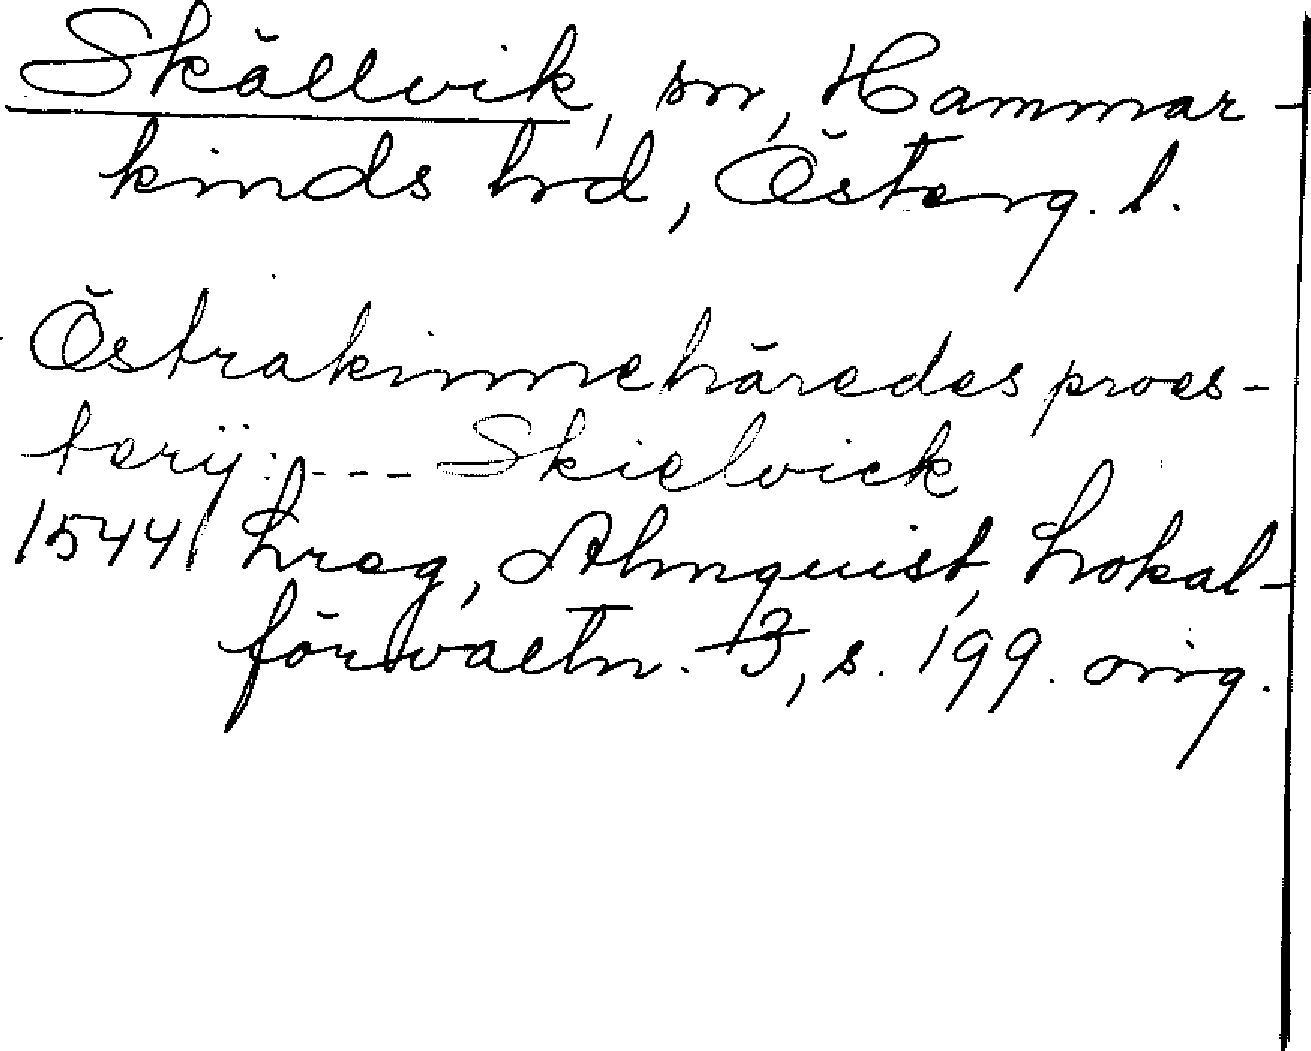 Skällvik, sn, Hammar-
kinds hd, Österg. l.
Östrakinnehäredes proes-
terij: --- Skielvick
1544 Lreg, Almquist, Lokal-
förvaltn. 13, s. 199. orig.